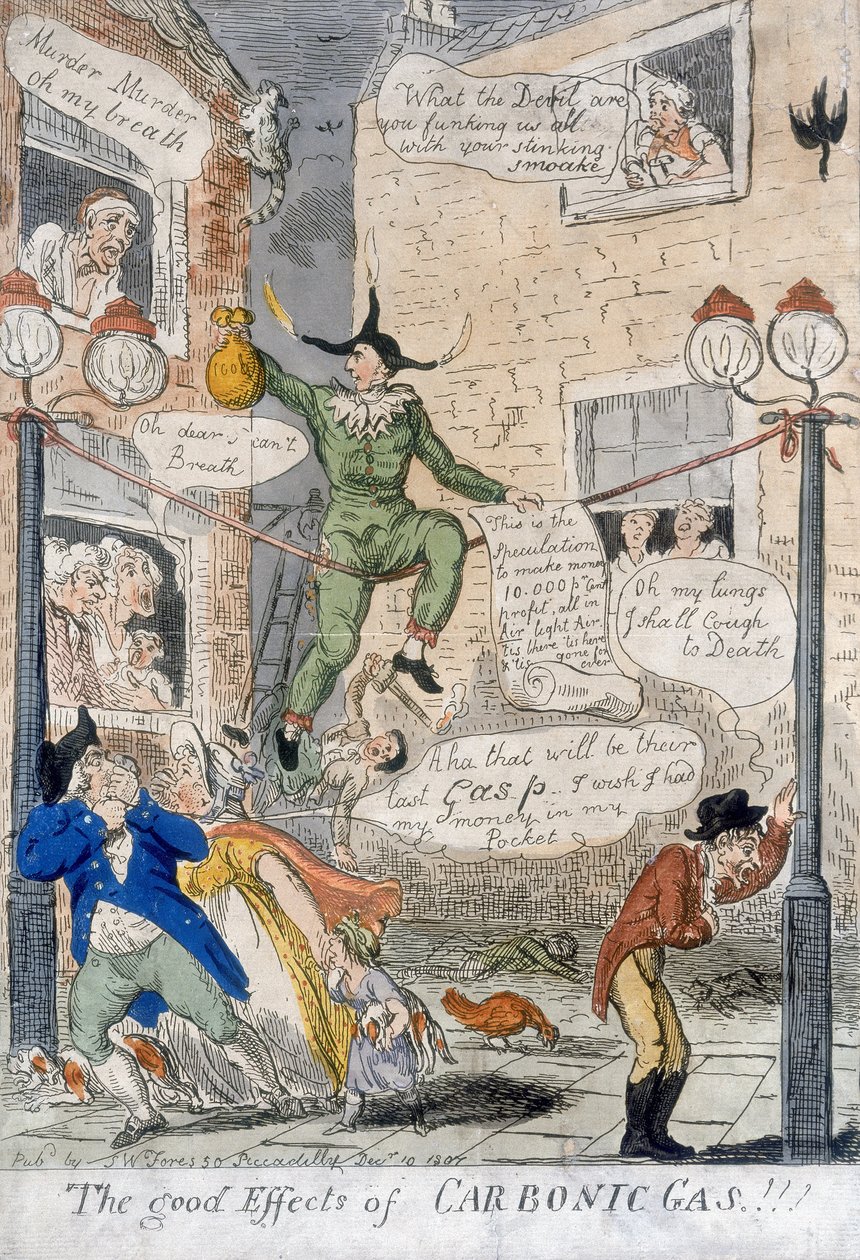 Murder Murder
oh my breath
What the Devil are
you funking us all
with your stinking
smoake
1000
Oh dear I can't
Breath
This is the
Speculation
to make money
10.000 pr Cent
profit, all in
Air light Air.
tis there 'tis here
& 'tis gone for
ever
Oh my lungs
I shall Cough
to Death
Aha that will be their
last Gasp. I wish I had
my money in my
Pocket
Pubd by S W Fores 50 Piccadilly Decr 10 1807
The good Effects of CARBONIC GAS.!!!